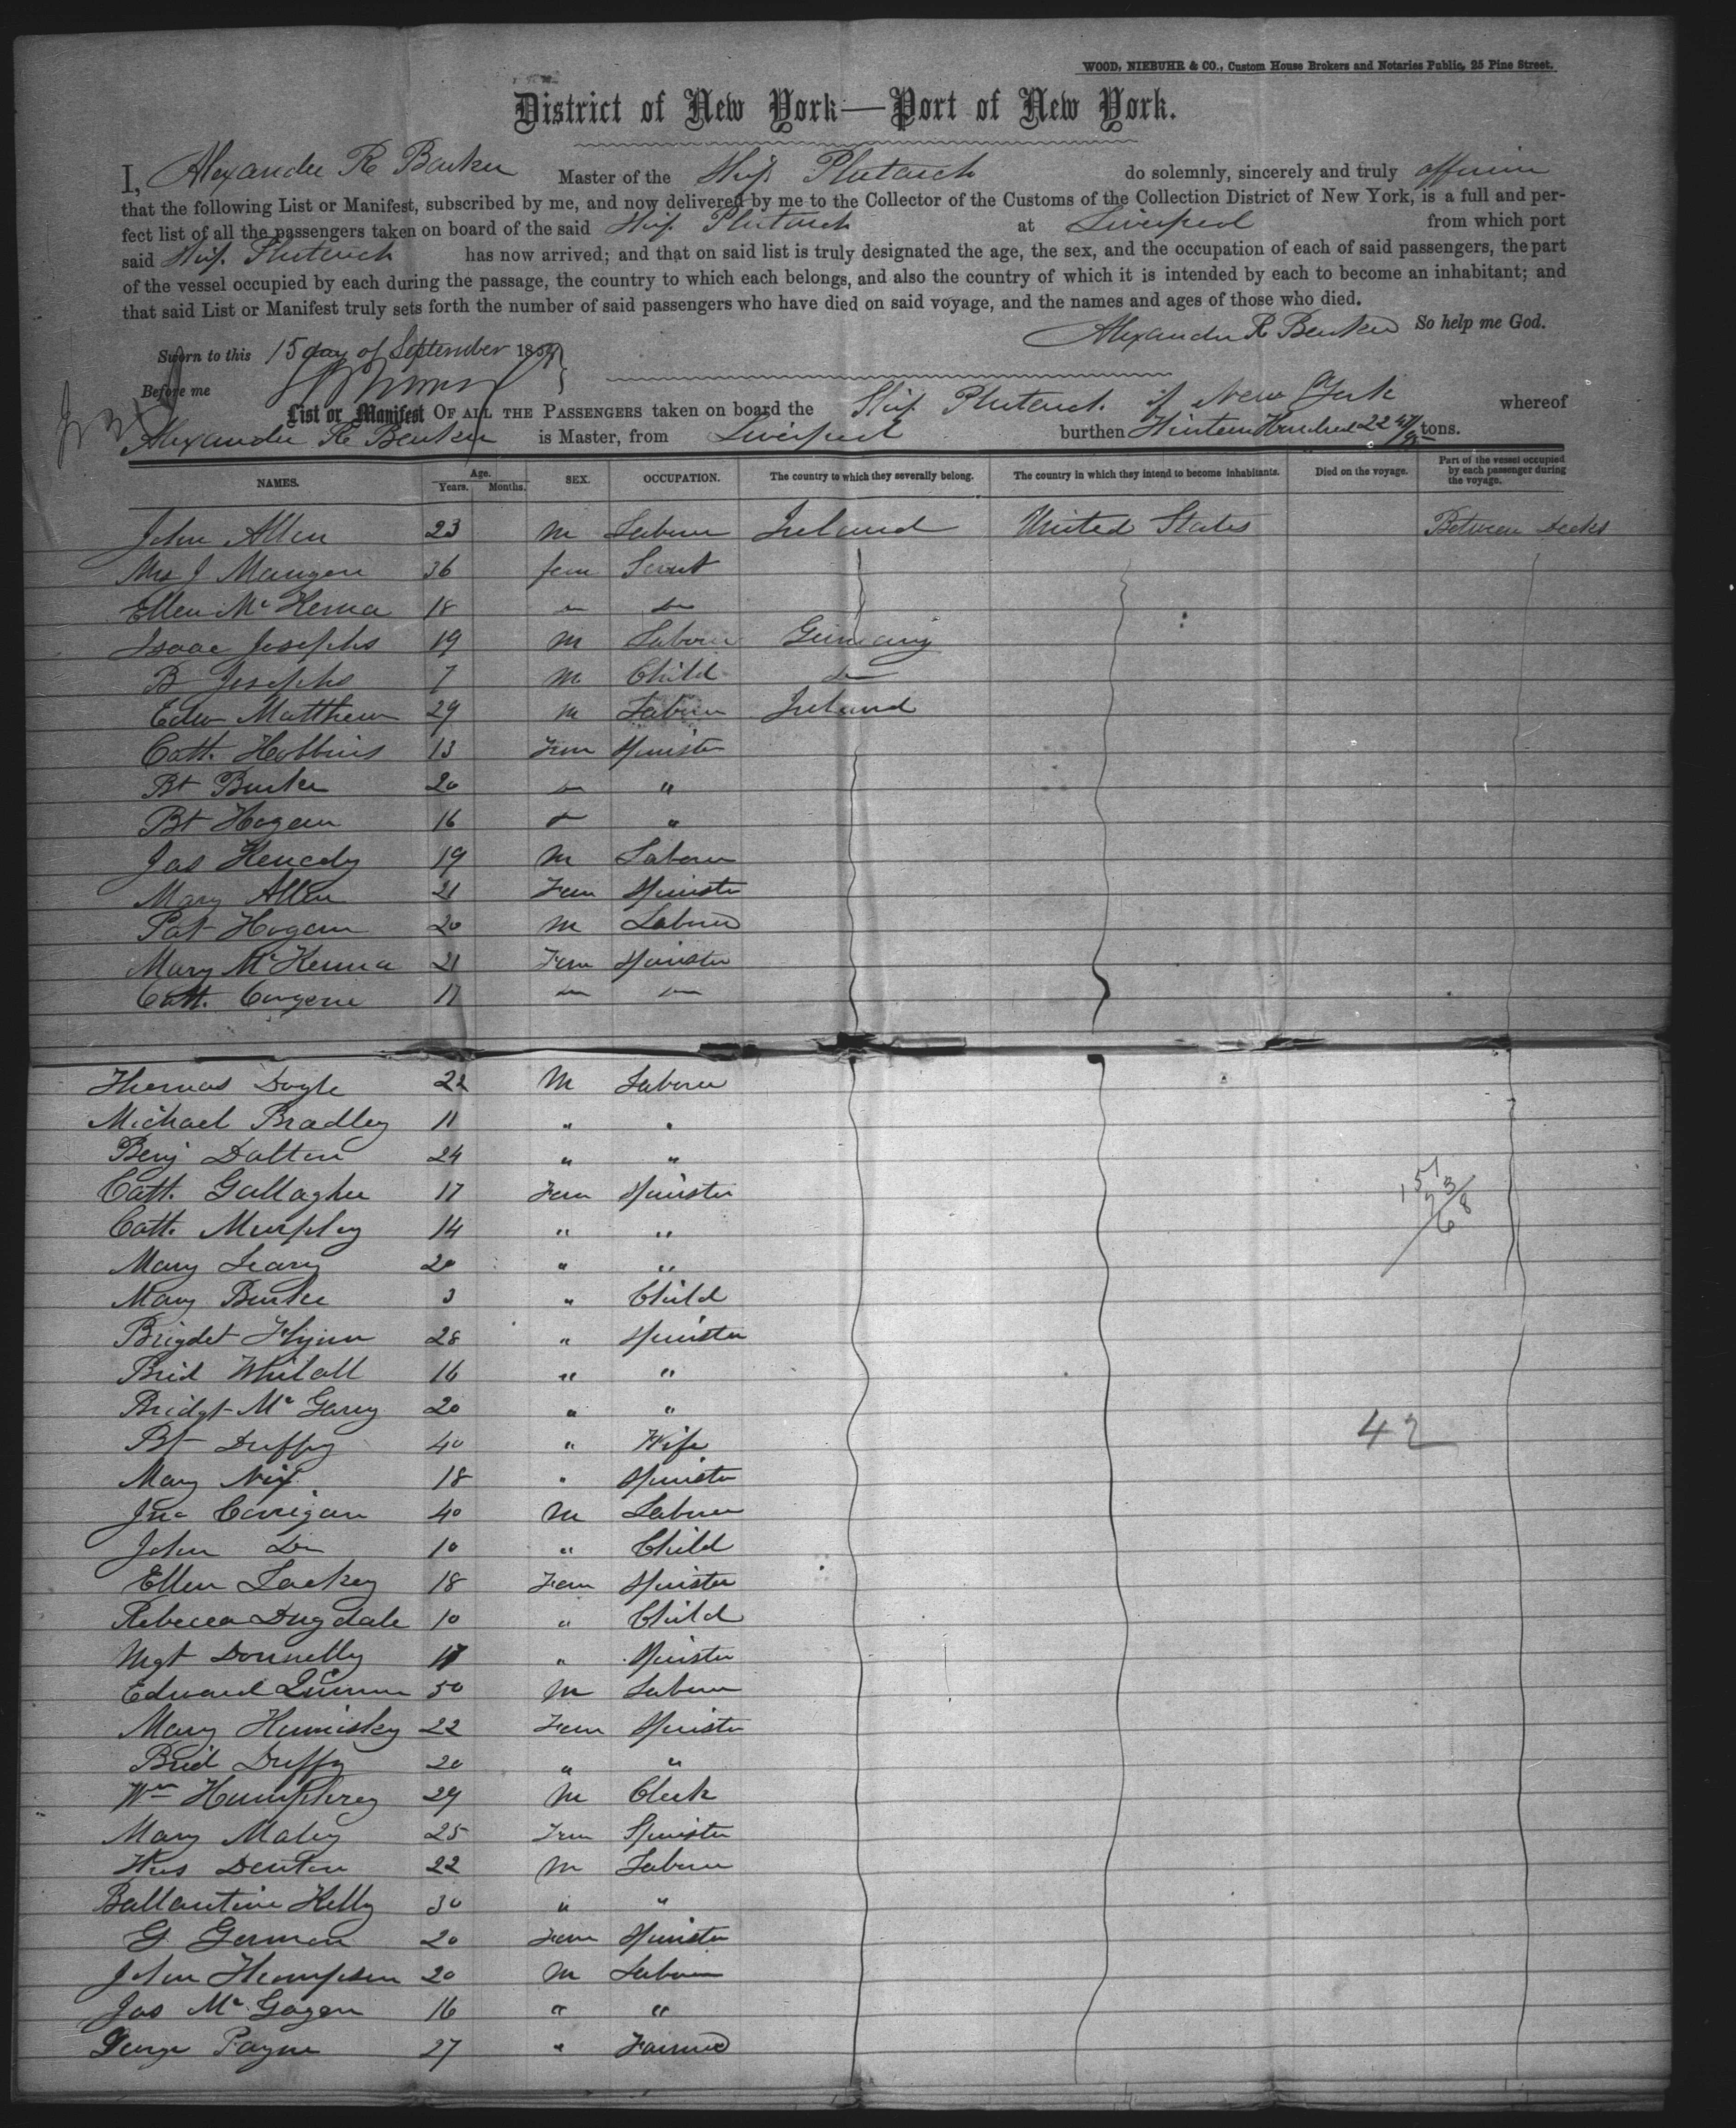 WOOD, NIEBUHR & CO., Custom House Brokers and Notaries Public, 25 Pine Street.
District of New York—Port of New York.
I, Alexander R Master of the Ship Plutarch do solemnly, sincerely and truly affirm
that the following List or Manifest, subscribed by me, and now delivered by me to the Collector of the Customs of the Collection District of New York, is a full and per-
fect list of all the passengers taken on board of the said Ship Plutarch at Liverpool from which port
said Ship Plutarch has now arrived; and that on said list is truly designated the age, the sex, and the occupation of each of said passengers, the part
of the vessel occupied by each during the passage, the country to which each belongs, and also the country of which it is intended by each to become an inhabitant; and
that said List or Manifest truly sets forth the number of said passengers who have died on said voyage, and the names and ages of those who died.
Alexander R So help me God.
Sworn to this 15 day of September 185
Before me
List or Manifest OF ALL THE PASSENGERS taken on board the Ship Plutarch of New York whereof
Alexander R is Master, from Liverpool burthen Hundred 22 tons.
NAMES. Age. Years. Months. SEX. OCCUPATION. The country to which they severally belong. The country in which they intend to become inhabitants. Died on the voyage. Part of the vessel occupied by each passenger during the voyage.
John Allen 23 M Laborer Ireland United States Between Decks
Mrs J Mangen 36 fem Servt
Ellen McKenna 18 do do
Isaac Josephs 19 M Laborer Germany
B Josephs 7 M Child do
Edw Matthew 29 M Laborer Ireland
Cath. 13 Fem Spinster
Bt Burke 20 do "
Bt Hogan 16 do "
Jas Kenedy 19 M Laborer
Mary Allen 21 Fem Spinster
Pat Hogan 20 M Laborer
Mary McKenna 21 Fem Spinster
Cath. 17 do do
Thomas Doyle 22 M Laborer
Michael Bradley 11 " "
Benj Dalton 24 " "
Cath. Gallagher 17 Fem Spinster
Cath. Murphy 14 " "
Mary Leary 20 " "
Mary Burke 3 " Child
Brigdet Flynn 28 " Spinster
Brid Whitall 16 " "
Bridgt McGarry 20 " "
Bt Duffy 40 " Wife
42
Mary Nix 18 " Spinster
Jno Corrigan 40 M Laborer
John Do 10 " Child
Ellen Lackey 18 Fem Spinster
Rebecca Dugdale 10 " Child
Mgt Donnelly 17 " Spinster
Edward Quinn 50 M Laborer
Mary 22 Fem Spinster
Brid Duffy 20 " "
Wm Humphrey 29 M Clerk
Mary Maley 25 Fem Spinster
Denton 22 M Laborer
Ballantine Kelly 30 " "
G Gorman 20 Fem Spinster
John Thompson 20 M Laborer
Jas McGagen 16 " "
George Payne 27 " Farmer